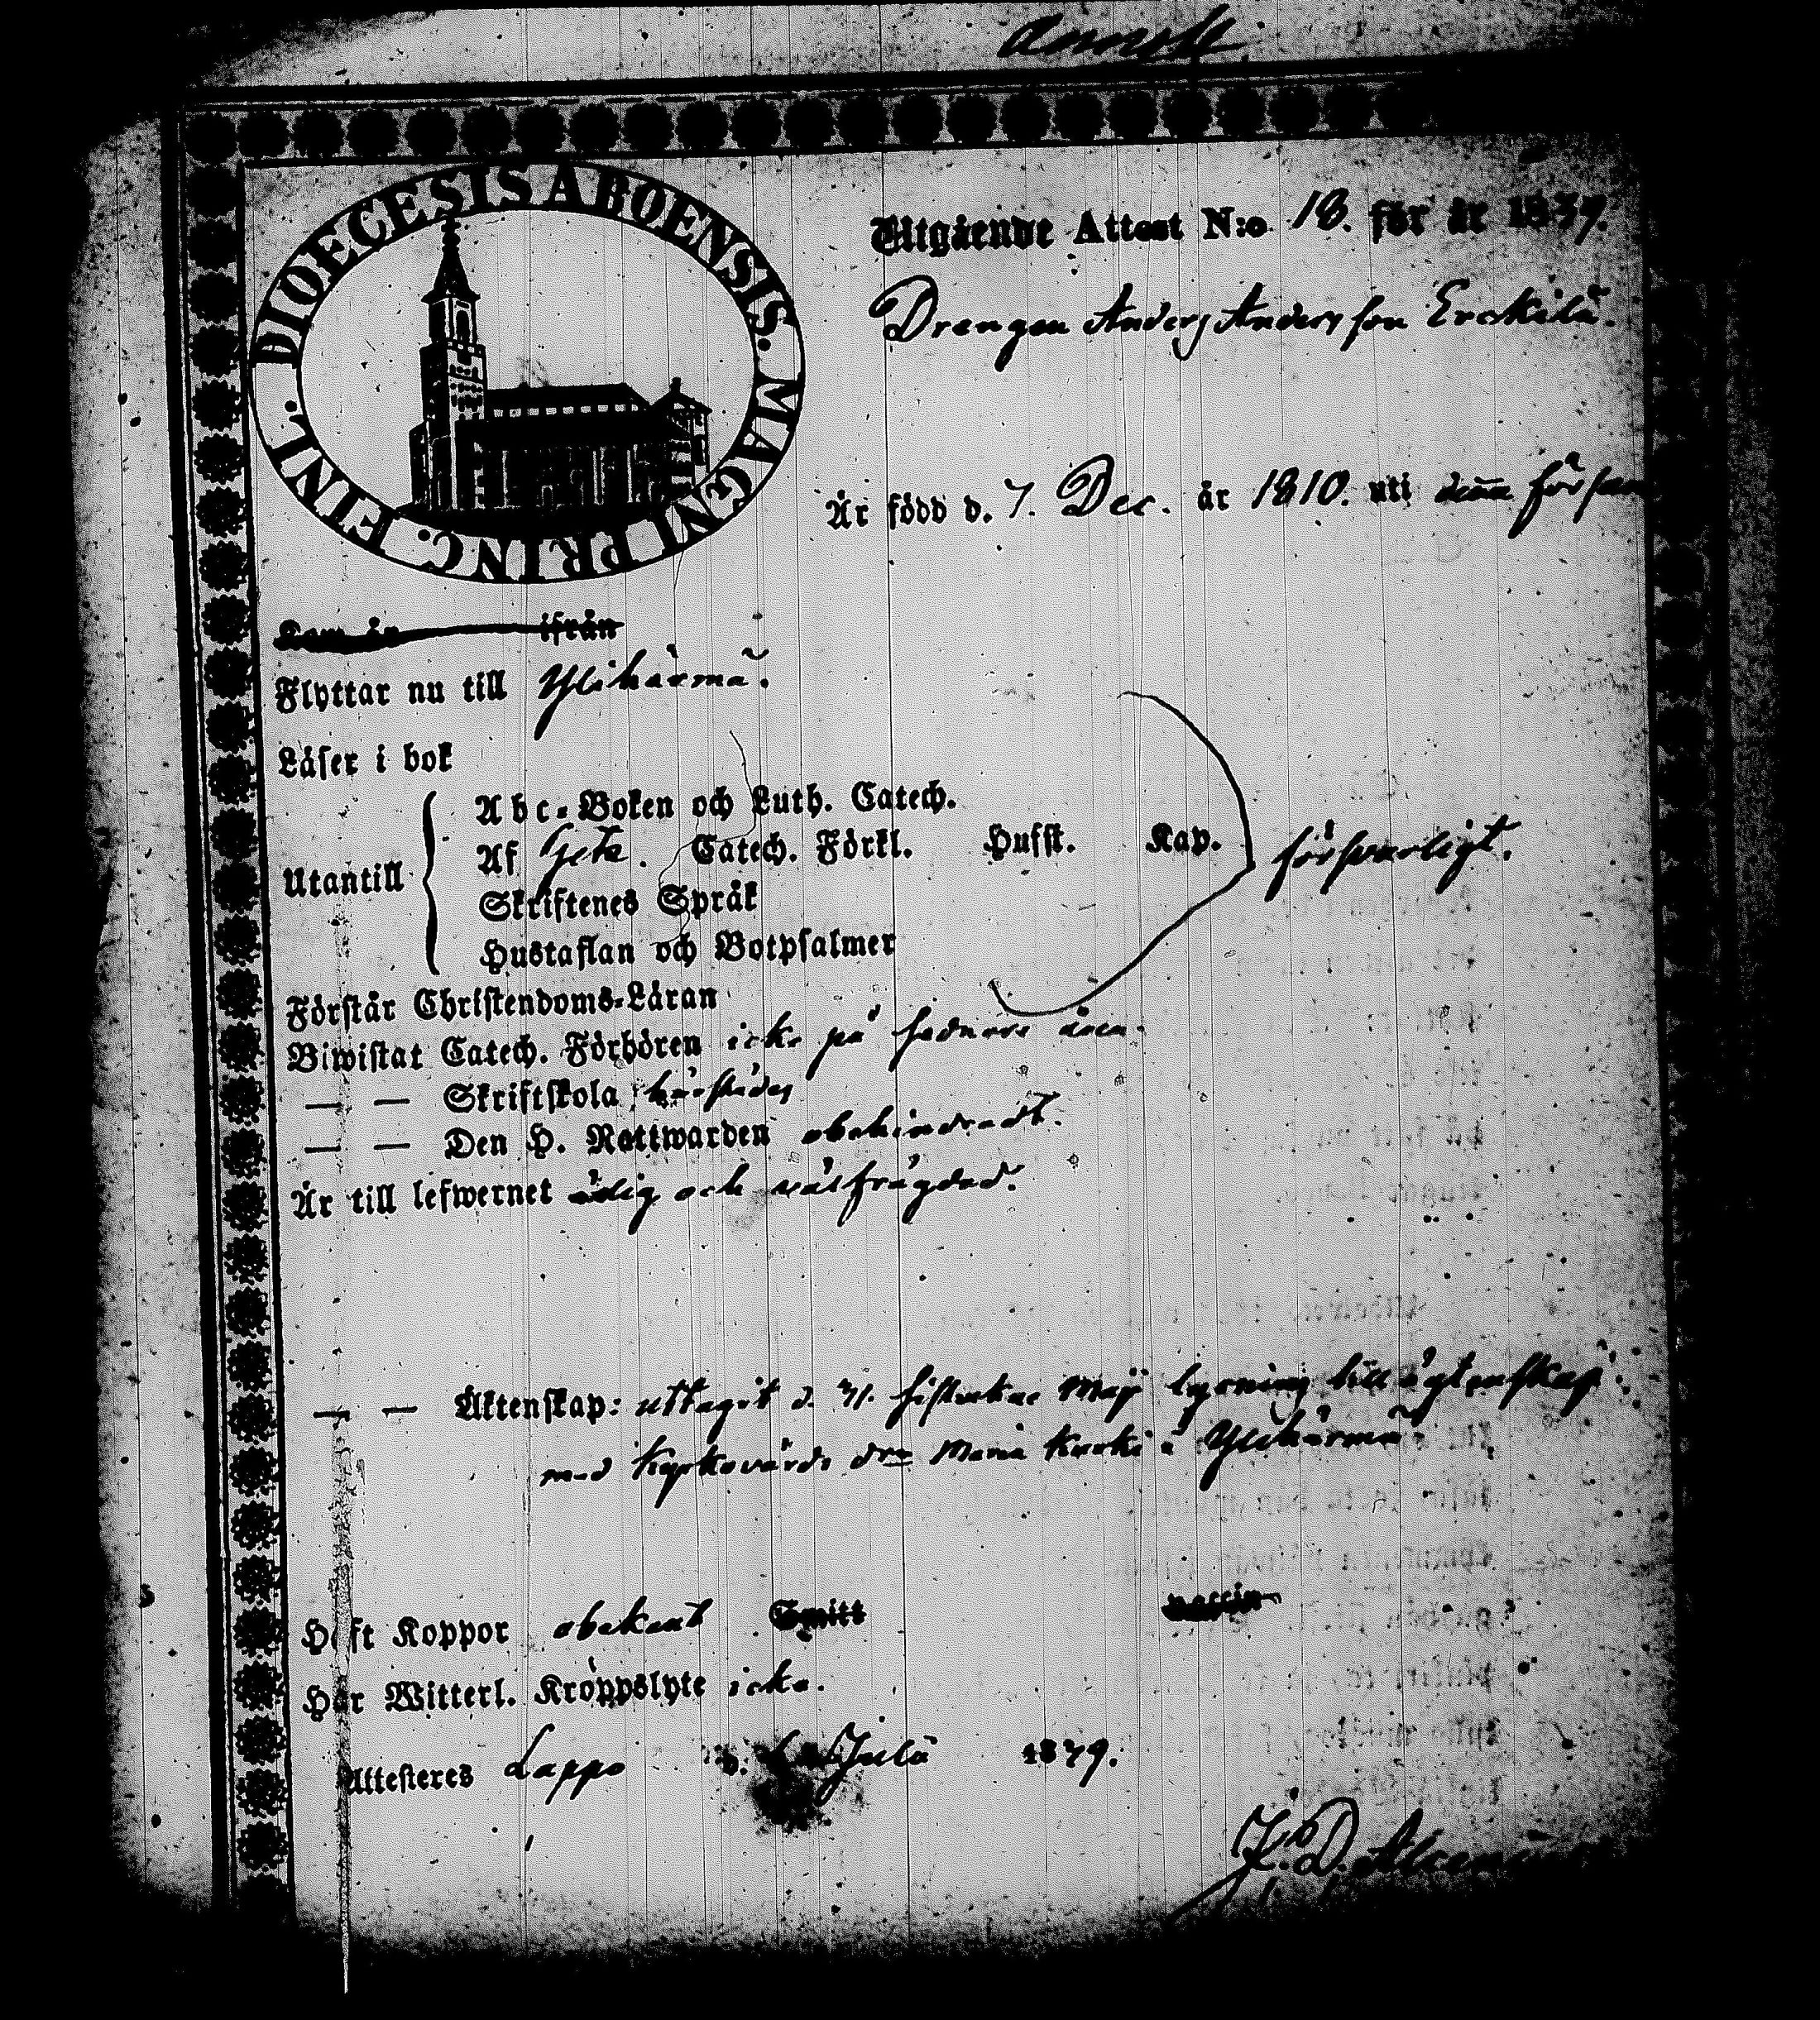 DIOECESIS ABOENSIS. MAGNI PRINC. FINL.
Utgående Attest N:o 18. för år 1839.
Drengen Anders Andersson
Är född d. 7. Dec. år 1810. uti denna försam
Kom år ifrån
Flyttar nu till Ylihärmä.
Läser i bok
Abc-Boken och Luth. Catech.
Utantill Af Catech. Förkl. Husst. Kap. försvarligt.
Skriftenes Språk
Hustaflan och Botpsalmer
Förstår Christendoms-Läran
Biwistat Catech. Förhören icke på sednare åren.
— — Skriftskola härstädes
— — Den H. Nattwarden obehindradt.
Är till lefwernet ärlig och välfrägdad.
— — Äktenskap: uttagit d. sistvekne Maji lysning till ägtenskap
med drn Maria i Ylihärmä
Haft Koppor obekant Smitt vaccin
Har Witterl. Kroppslyte icke.
Attesteres Lappo d. Julii 1839.